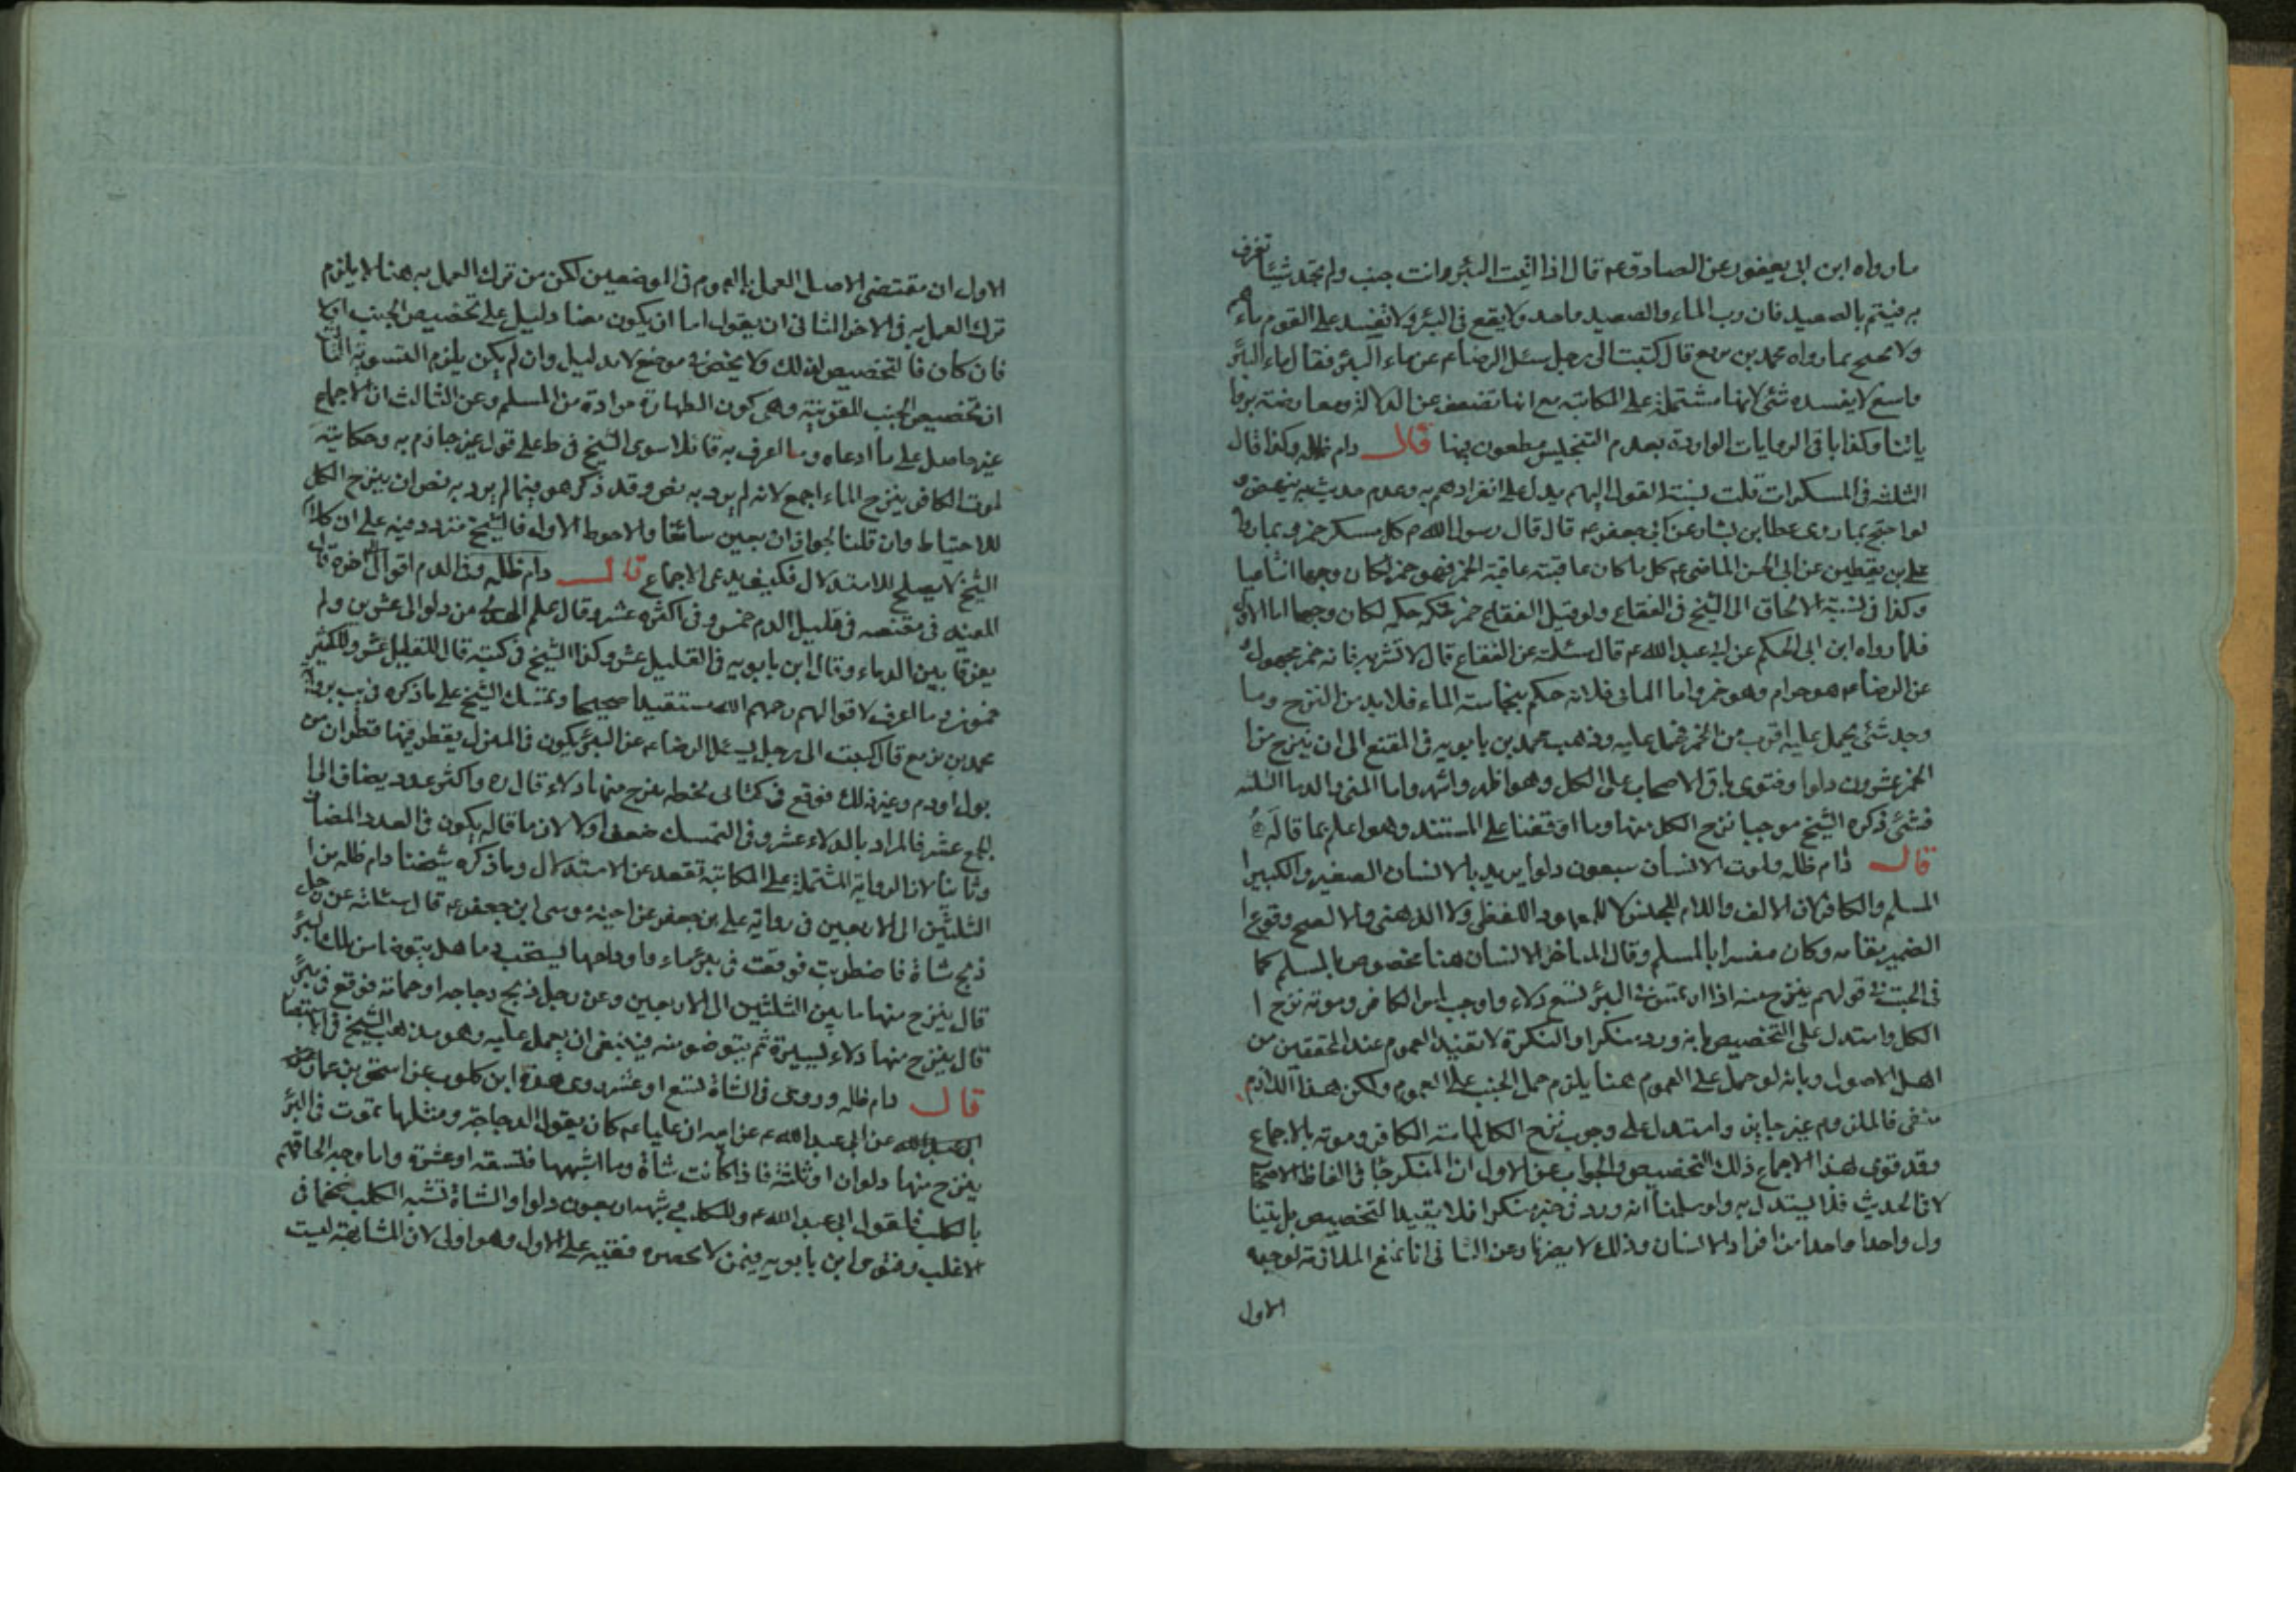 ما رواه ابن ابي يعفور عن الصادق عم قال اذا اتيت البئر وانت جنب ولم تجد شيئا تغرف
به فتيمم بالصعيد فان رب الماء والصعيد واحد ولا يقع في البئر ولا تفسد على القوم ماءهم
ولا يحتج بما رواه محمد بن بزيع قال كتبت الى رجل يسئل الرضا عم عن ماء البئر فقال ماء البئر
واسع لا يفسده شئ لانها مشتملة على المكاتبة مع انها تضعف عن الدلالة ومعارضة بروا
ياتنا وكذا باقي الروايات الواردة بعدم التنجيس مطعون بها قال دام ظله وكذا قال
الثلثة في المسكرات قلت نسبة القول اليهم يدل على انفرادهم به وعدم حديث به ينهض و
لو احتج بما روى عطا بن يسار عن ابي جعفر عم قال قال رسول الله ص كل مسكر خمر وبما رواه
علي بن يقطين عن ابي الحسن الماضي عم كل ما كان عاقبته عاقبة الخمر فهو خمر لكان وجها اقناعيا
وكذا في نسبة الالحاق الى الشيخ في الفقاع ولو قيل الفقاع خمر فحكمه حكمه لكان وجها اما الاول
فلما رواه ابن ابي الحكم عن ابي عبد الله عم قال سئلته عن الفقاع قال لا تشربه فانه خمر مجهول و
عن الرضا عم هو حرام وهو خمر واما الثاني فلانه حكم بنجاسته الماء فلا بد من النزح وما
وجد شئ يحمل عليه اقرب من الخمر فحمل عليه وذهب محمد بن بابويه في المقنع الى ان ينزح من ا
الخمر عشرون دلوا وفتوى باقي الاصحاب على الكل وهو اظهر واشهر واما المني والدماء الثلثه
فشئ ذكره الشيخ موجبا نزح الكل منها وما اوقفنا على المستند وهو اعلم بما قاله
قال دام ظله ولموت الانسان سبعون دلوا يريد بالانسان الصغير والكبير ا
المسلم والكافر لان الالف واللام للجنس لا للمعهود اللفظي ولا الذهني والا لصح وقوع ا
الضمير مقامه وكان مفسرا بالمسلم وقال المتاخر الانسان هنا مخصوص بالمسلم كما
في الجنب في قولهم ينزح منه اذا ارتمس في البئر سبع دلاء واوجب لمس الكافر وموته نزح ا
الكل واستدل على التخصيص بانه ورد منكرا والنكرة لا تفيد العموم عند المحققين من
اهل الاصول وبانه لو حمل على العموم هنا يلزم حمل الجنب على العموم ولكن هذا اللازم
منفي فالملزوم غير جايز واستدل على وجوب نزح الكل لماسة الكافر وموته بالاجماع
وقد قوى هذا الاجماع ذلك التخصيص والجواب عن الاول ان المنكر جاء في الفاظ الاصحاب
لا في الحديث فلا يستدل به ولو سلمنا انه ورد في خبر منكرا فلا يفيد التخصيص بل يتنا
ول واحدا واحدا من افراد الانسان وذلك لا يضرنا وعن الثاني انا نمنع الملازمة لوجهين
الاول
الاول ان مقتضى الاصل العمل بالعموم في الموضعين لكن من ترك العمل به هنا لا يلزم
ترك العمل به في الاخر الثاني ان يقول اما ان يكون معنا دليل على تخصيص الجنب او لا
فان كان فالتخصيص لذلك ولا يخص في موضع لا بدليل وان لم يكن يلزم التسوية الثالث
ان تخصيص الجنب للقرينة وهي كون الطهارة مرادة من المسلم وعن الثالث ان الاجماع
غير حاصل على ما ادعاه وما اعرف به قائلا سوى الشيخ في ط على قول غير جازم به وحكايته
لموت الكافر ينزح الماء اجمع لانه لم يرد به نص وقد ذكر هو فيما لم يرد به نص ان ينزح الكل
للاحتياط وان قلنا بجواز اربعين سائغا والاحوط الاول فالشيخ متردد فيه على ان كلام
الشيخ لا يصلح للاستدلال فكيف يدعي الاجماع قال دام ظله وفي الدم اقوال اخره قال
المفيد في مقنعه في قليل الدم خمس وفي اكثره عشر وقال علم الهدى من دلو الى عشرين ولم
يفرق بين الدماء وقال ابن بابويه في القليل عشر وكذا الشيخ في كتبه قال للقليل عشر وللكثير
خمسون وما اعرف لاقوالهم رحمهم الله مستندا صحيحا وتمسك الشيخ على ما ذكره في يب برواية
محمد بن بزيع قال كتبت الى رجل يسئل الرضا عم عن البئر يكون في المنزل يقطر فيها قطران من
بول او دم وغير ذلك فوقع في كتابي بخطه ينزح منها دلاء قال ره واكثر عدد يضاف الى ا
الجمع عشر فالمراد بالدلاء عشر وفي التمسك ضعف اولا لان ما قاله يكون في العدد المضاف
وثانيا لان الرواية المشتملة على المكاتبة تقعد عن الاستدلال وما ذكره شيخنا دام ظله من ا
الثلثين الى الاربعين في رواية علي بن جعفر عن اخيه موسى ابن جعفر عم قال سئلته عن رجل
ذبح شاة فاضطربت فوقعت في بئر ماء واوداجها يشخب دما هل يتوضا من تلك البئر
قال ينزح منها ما بين الثلثين الى الاربعين وعن رجل ذبح دجاجه او حمامة فوقع في بئر
قال ينزح منها دلاء يسيرة ثم يتوضو منه فينبغي ان يعمل عليه وهو مذهب الشيخ في الاستبصار
قال دام ظله وروى في الشاة تسع او عشر روى هذه ابن كلوب عن اسحق بن عمار عن
ابي عبد الله عن ابي عبد الله عم عن ابيه ان عليا عم كان يقول الدجاجة ومثلها تموت في البئر
ينزح منها دلوان او ثلثة فاذا كانت شاة وما اشبهها فتسعه او عشرة واما وجه الحاقهم
بالكلب فلقول ابي عبد الله عم وللكلب وشبهه اربعون دلوا والشاة تشبه الكلب فحما في
الاغلب وفتوى ابن بابويه فيمن لا يحضره فقيه على الاول وهو اولى لان المشابهة ليست